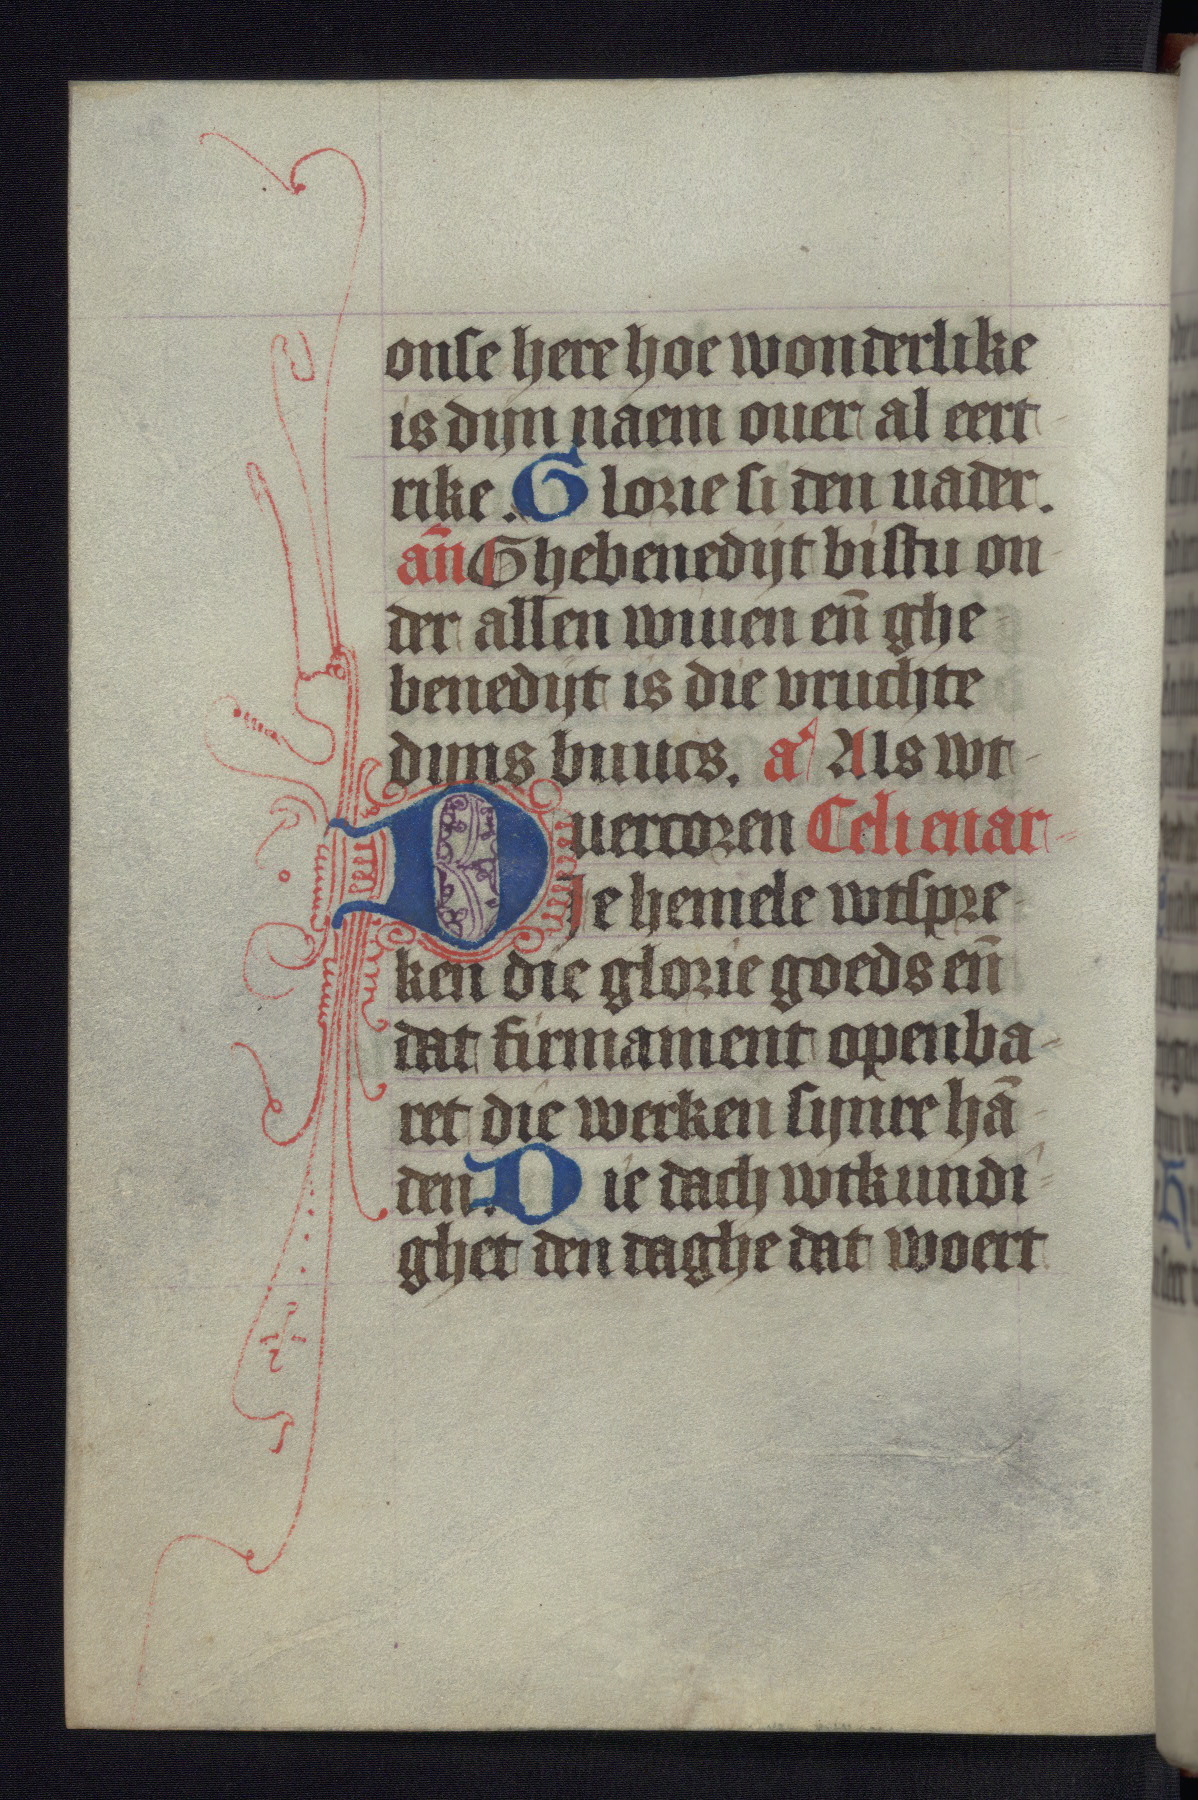 onse here hoe wonderlike
is dyn naem ouer al eert
rike. Glorie si den uader.
an̄ Ghebenedijt bistu on
der allen wiuen en̄ ghe
benedijt is die vruchte
dijns buucs. a Als wt
uercoren Celi enar
Die hemele wtspre
ken die glorie goeds en̄
dat firmament openba
ret die werken synre hā
den. Die dach wtkundi
ghet den daghe dat woert